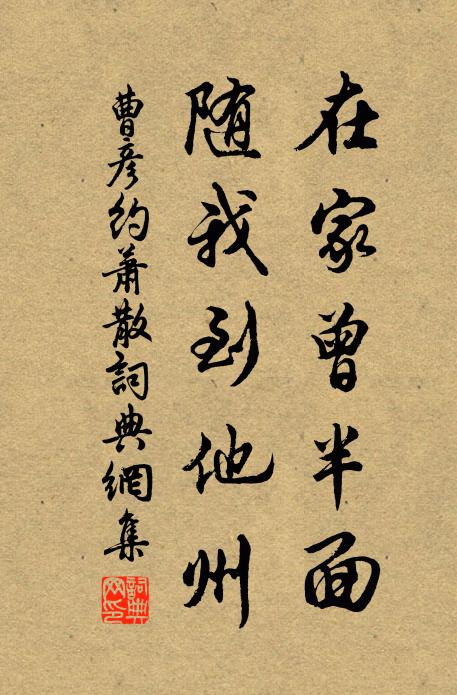 在家曾半面
随我到他州
曹彦約萧散詞典網集
詞典网印